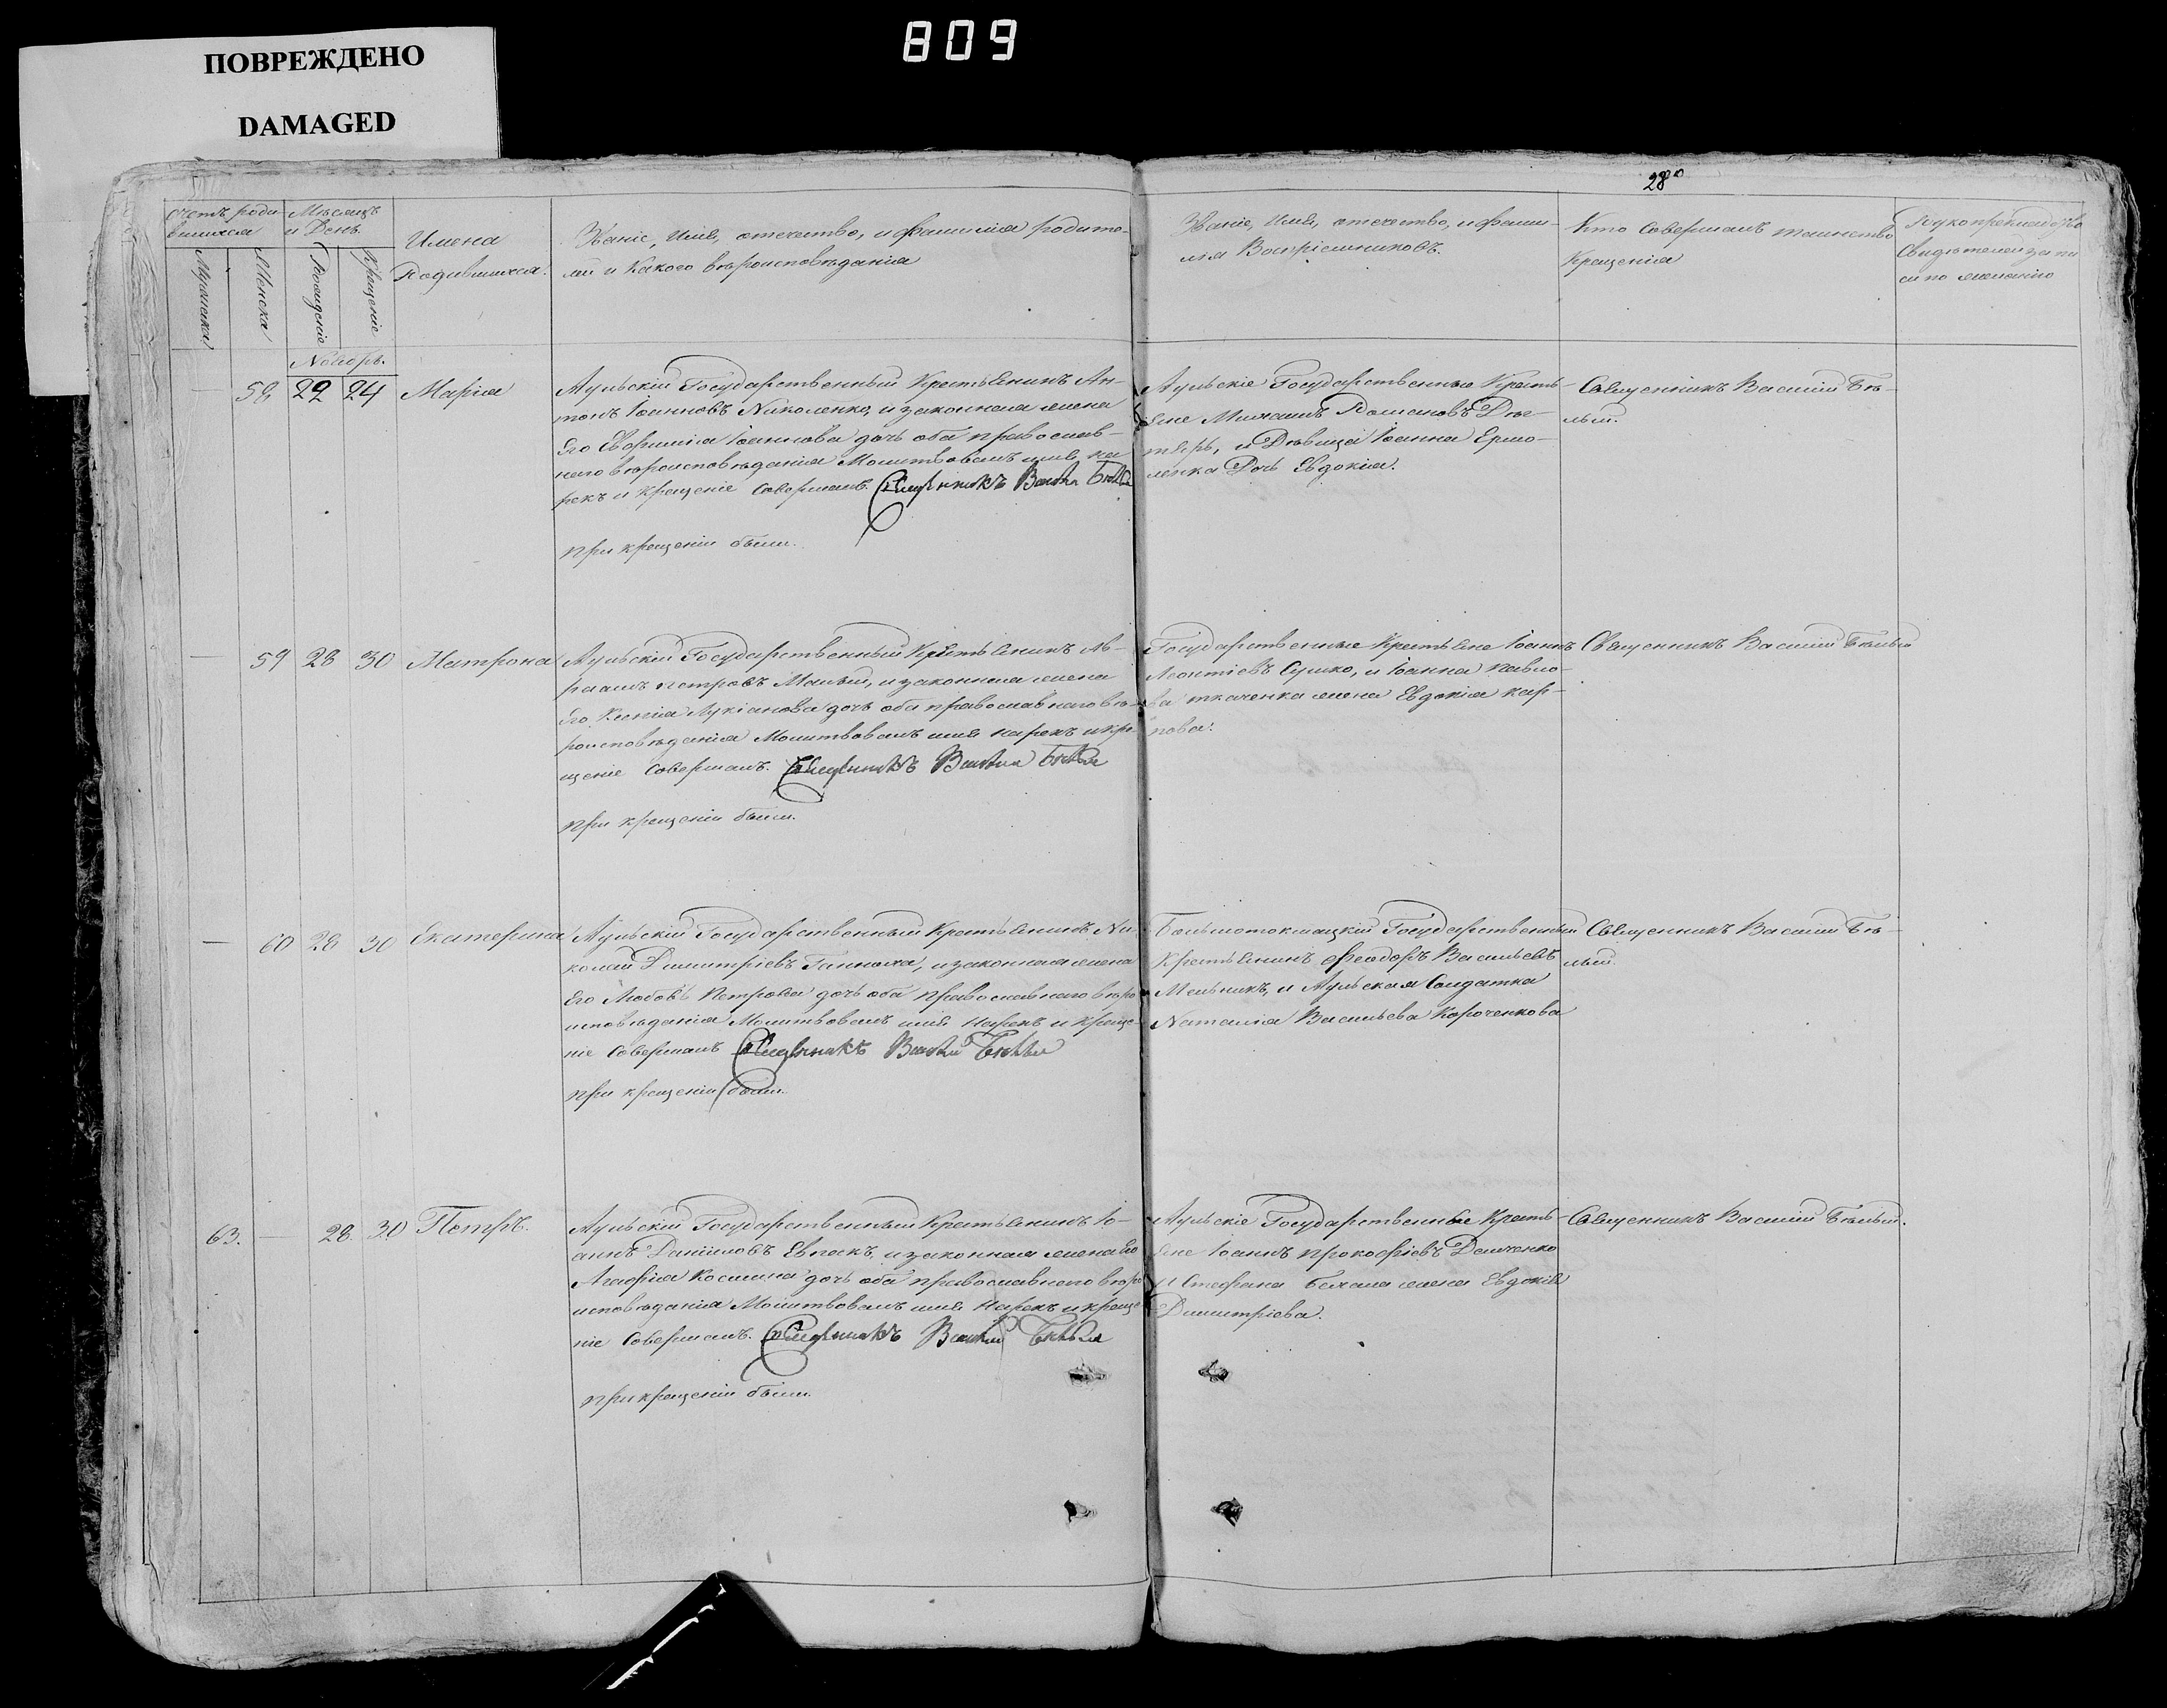 ПОВРЕЖДЕНО
DAMAGED
809
280
Счетъ роди-
вшихся
Мѣсяцъ
и День.
Мужеска
Женска
Рожденіе
Крещеніе
Имена
Родившихся.
Званіе, Имя, отечество, и фамилія родите-
лей и Какого вѣроисповѣданія
Званіе, Имя, отечество, и фами-
лія Воспріемниковъ.
Кто Совершалъ таинство
Крещенія
Рукоприкладство
Свидѣтелей записи
по желанію
Ноябрь.
58 22 24 Марія
Аульскій Государственный Крестьянинъ Ан-
тонъ Іоанновъ Николенко, и законная жена
Его Евфимія Іоаннова дочь оба православ-
наго вѣроисповѣданія Молитвовалъ имя на
рекъ и крещеніе Совершалъ. Священникъ Василій Бѣлый
при крещеніи были.
Аульскіе Государственные Кресть-
яне Михаилъ Романовъ
и Дѣвица Іоанна Ермо-
ленка Дочь Евдокія.
Священникъ Василій Бѣ-
лый.
59 28 30 Матрона
Аульскій Государственный Крестьянинъ Ав-
раамъ петровъ Малый, и законная жена
Его Ксенія Лукіанова дочь оба православнаго вѣ-
роисповѣданія Молитвовалъ имя нарекъ и кре
щеніе Совершалъ. Священникъ Василій Бѣлый
при крещеніи были.
Государственные Крестьяне Іоаннъ
Леонтіевъ Сушко, и Іоанна павло-
ва ткаченка жена Евдокія кар-
пова.
Священникъ Василій Бѣлый
60 28 30 Екатерина
Аульскій Государственный Крестьянинъ Ни
колай Димитріевъ и законная жена
Его Любовь Петрова дочь оба православнаго вѣро
исповѣданія Молитвовалъ имя Нарекъ и Креще-
ніе Совершалъ Священникъ Василій Бѣлый
при крещеніи были.
Большотокмацкій Государственный
Крестьянинъ Феодоръ Васильевъ
Мельникъ, и Аульская Солдатка
Наталія Васильева Короченкова
Священникъ Василій Бѣ-
лый.
63. 28. 30 Петръ.
Аульскій Государственный Крестьянинъ Іо-
аннъ Даниловъ Евпакъ, и законная жена Его
Агафія Космина дочь оба православнаго вѣро
исповѣданія Молитвовалъ имя Нарекъ и креще
ніе Совершалъ. Священникъ Василій Бѣлый
при крещеніи были.
Аульскіе Государственные Кресть-
яне Іоаннъ прокофіевъ Демченко
и Стефана жена Евдокія
Димитріева.
Священникъ Василій Бѣлый.